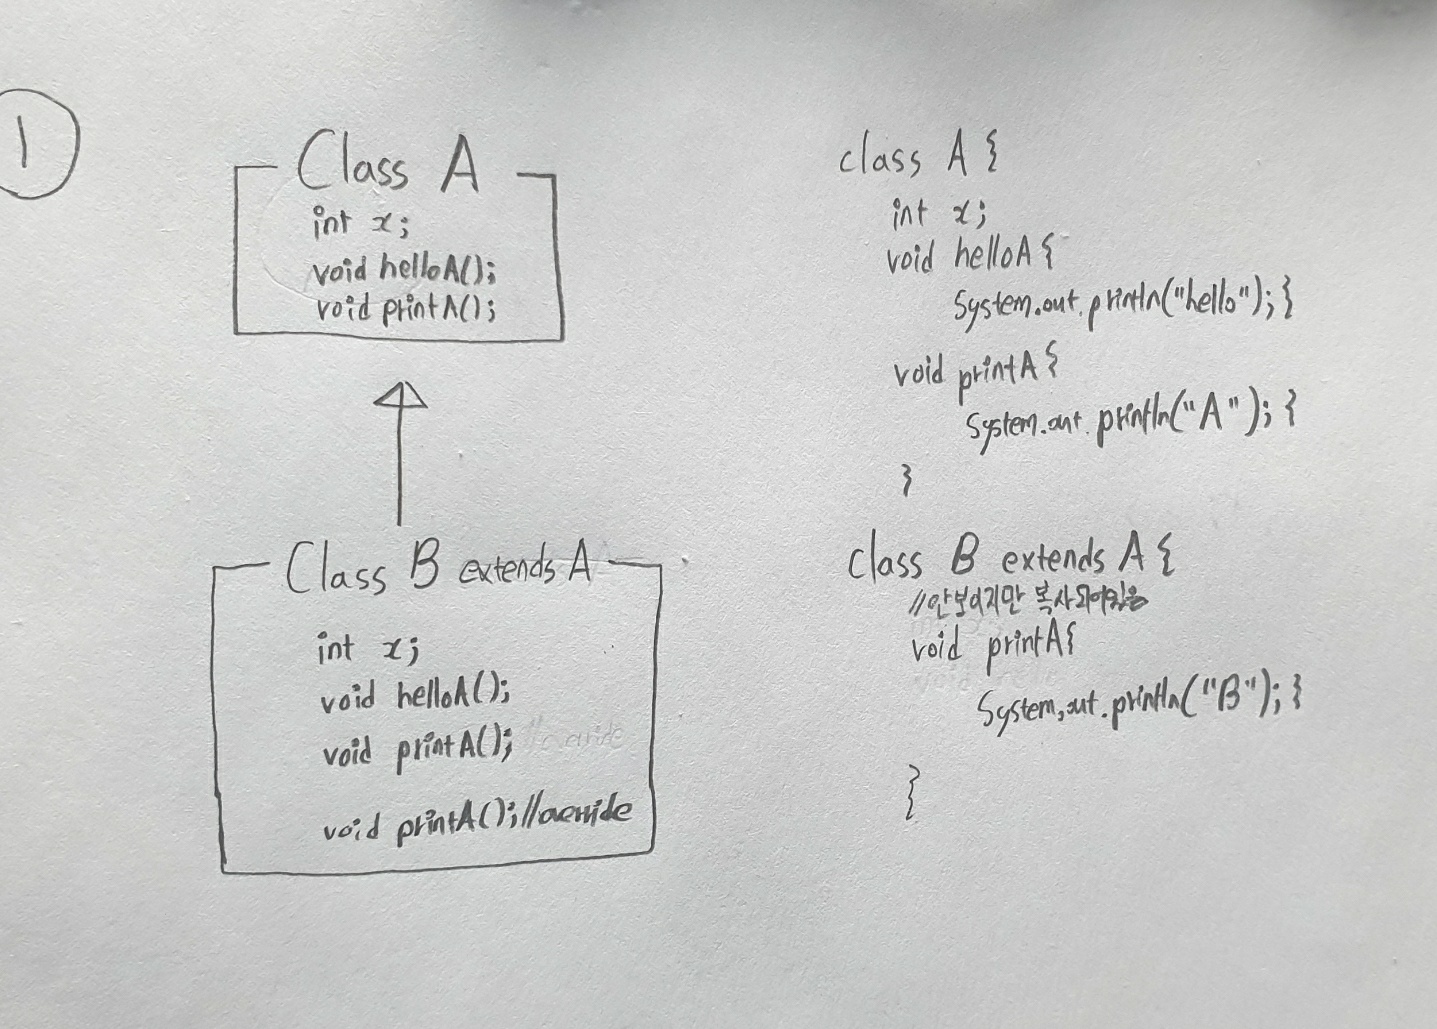 1
Class A
int x;
void helloA();
void printA();
Class B extends A
int x;
void helloA();
void printA();
void printA();//override
class A {
int x;
void helloA {
System.out.println("hello"); }
void printA {
System.out.println("A"); {
}
class B extends A {
//안보이지만 복사되어있음
void printA{
System.out.println("B"); }
}